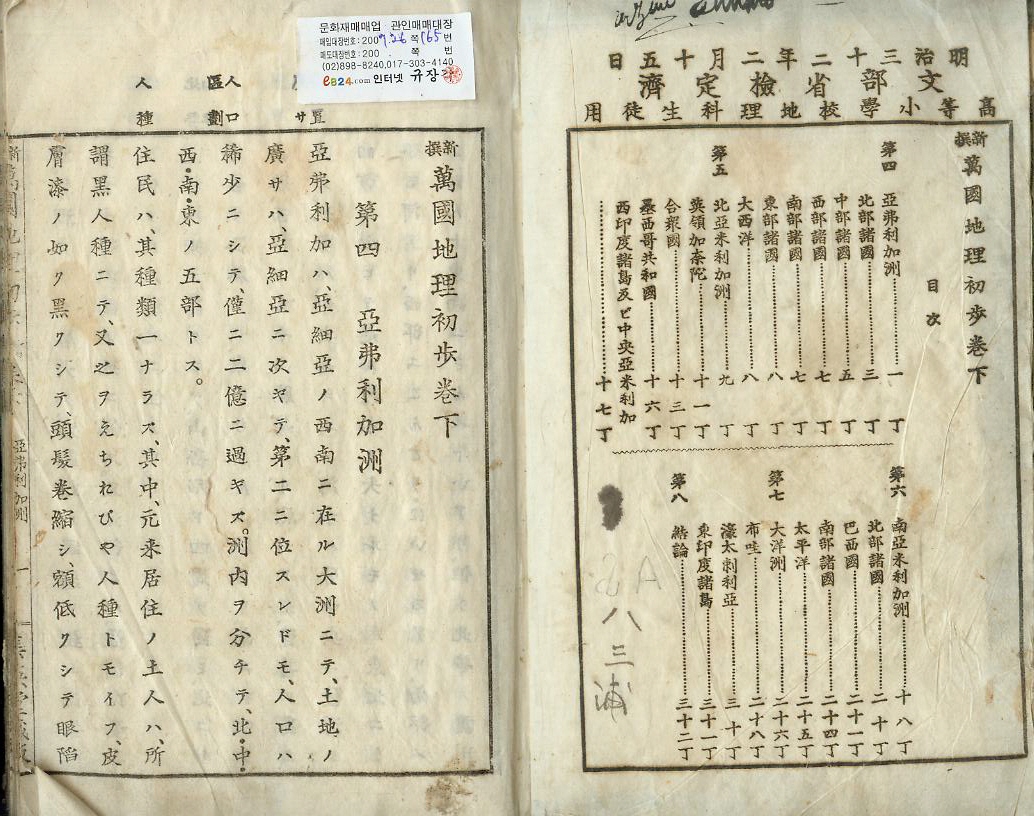 明治三十二年二月十五日
文部省檢定濟
高等小學校地理科生徒用
新撰萬國地理初歩巻下
目次
第四 亞弗利加洲 一丁
北部諸國 三丁
中部諸國 五丁
西部諸國 七丁
南部諸國 七丁
東部諸國 八丁
大西洋 八丁
第五 北亞米利加洲 九丁
英領加奈陀 十一丁
合衆國 十三丁
墨西哥共和國 十六丁
西印度諸島及ビ中央亞米利加
十七丁
第六 南亞米利加洲 十八丁
北部諸國 二十丁
巴西國 二十一丁
南部諸國 二十四丁
太平洋 二十五丁
第七 大洋洲 二十六丁
布哇 二十八丁
濠太剌利亞 三十丁
東印度諸島 三十一丁
第八 結論 三十二丁
八三浦
문화재매매업 관인매매대장
매입대장번호: 200 7.26 쪽 165 번
매도대장번호: 200 쪽 번
(02)898-8240,017-303-4140
eB24.com 인터넷 규장각
新撰萬國地理初歩巻下
第四 亞弗利加洲
亞弗利加ハ、亞細亞ノ西南ニ在ル大洲ニテ、土地ノ
廣サハ、亞細亞ニ次ギテ、第二ニ位スレドモ、人口ハ
稀少ニシテ、僅ニ二億ニ過ギズ。洲内ヲ分チテ、北・中・
西・南・東ノ五部トス。
住民ハ、其種類一ナラズ、其中、元来居住ノ土人ハ、所
謂黒人種ニテ、又之ヲえちおぴや人種トモイフ、皮
膚漆ノ如ク黒クシテ、頭髮巻縮シ、額低クシテ眼陷
置
サ
人口
區劃
人種
亞弗利加洲
一